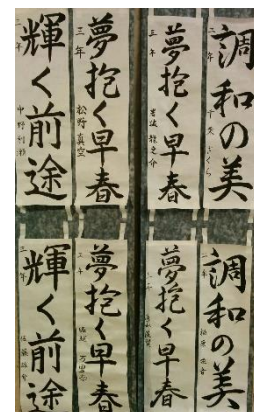 調和の美
三年
夢抱く早春
三年
夢抱く早春
三年
松野真空
輝く前途
三年
調和の美
夢抱く早春
夢抱く早春
輝く前途
三年